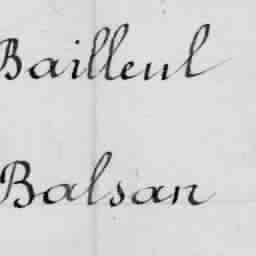 Bailleul
Balsan